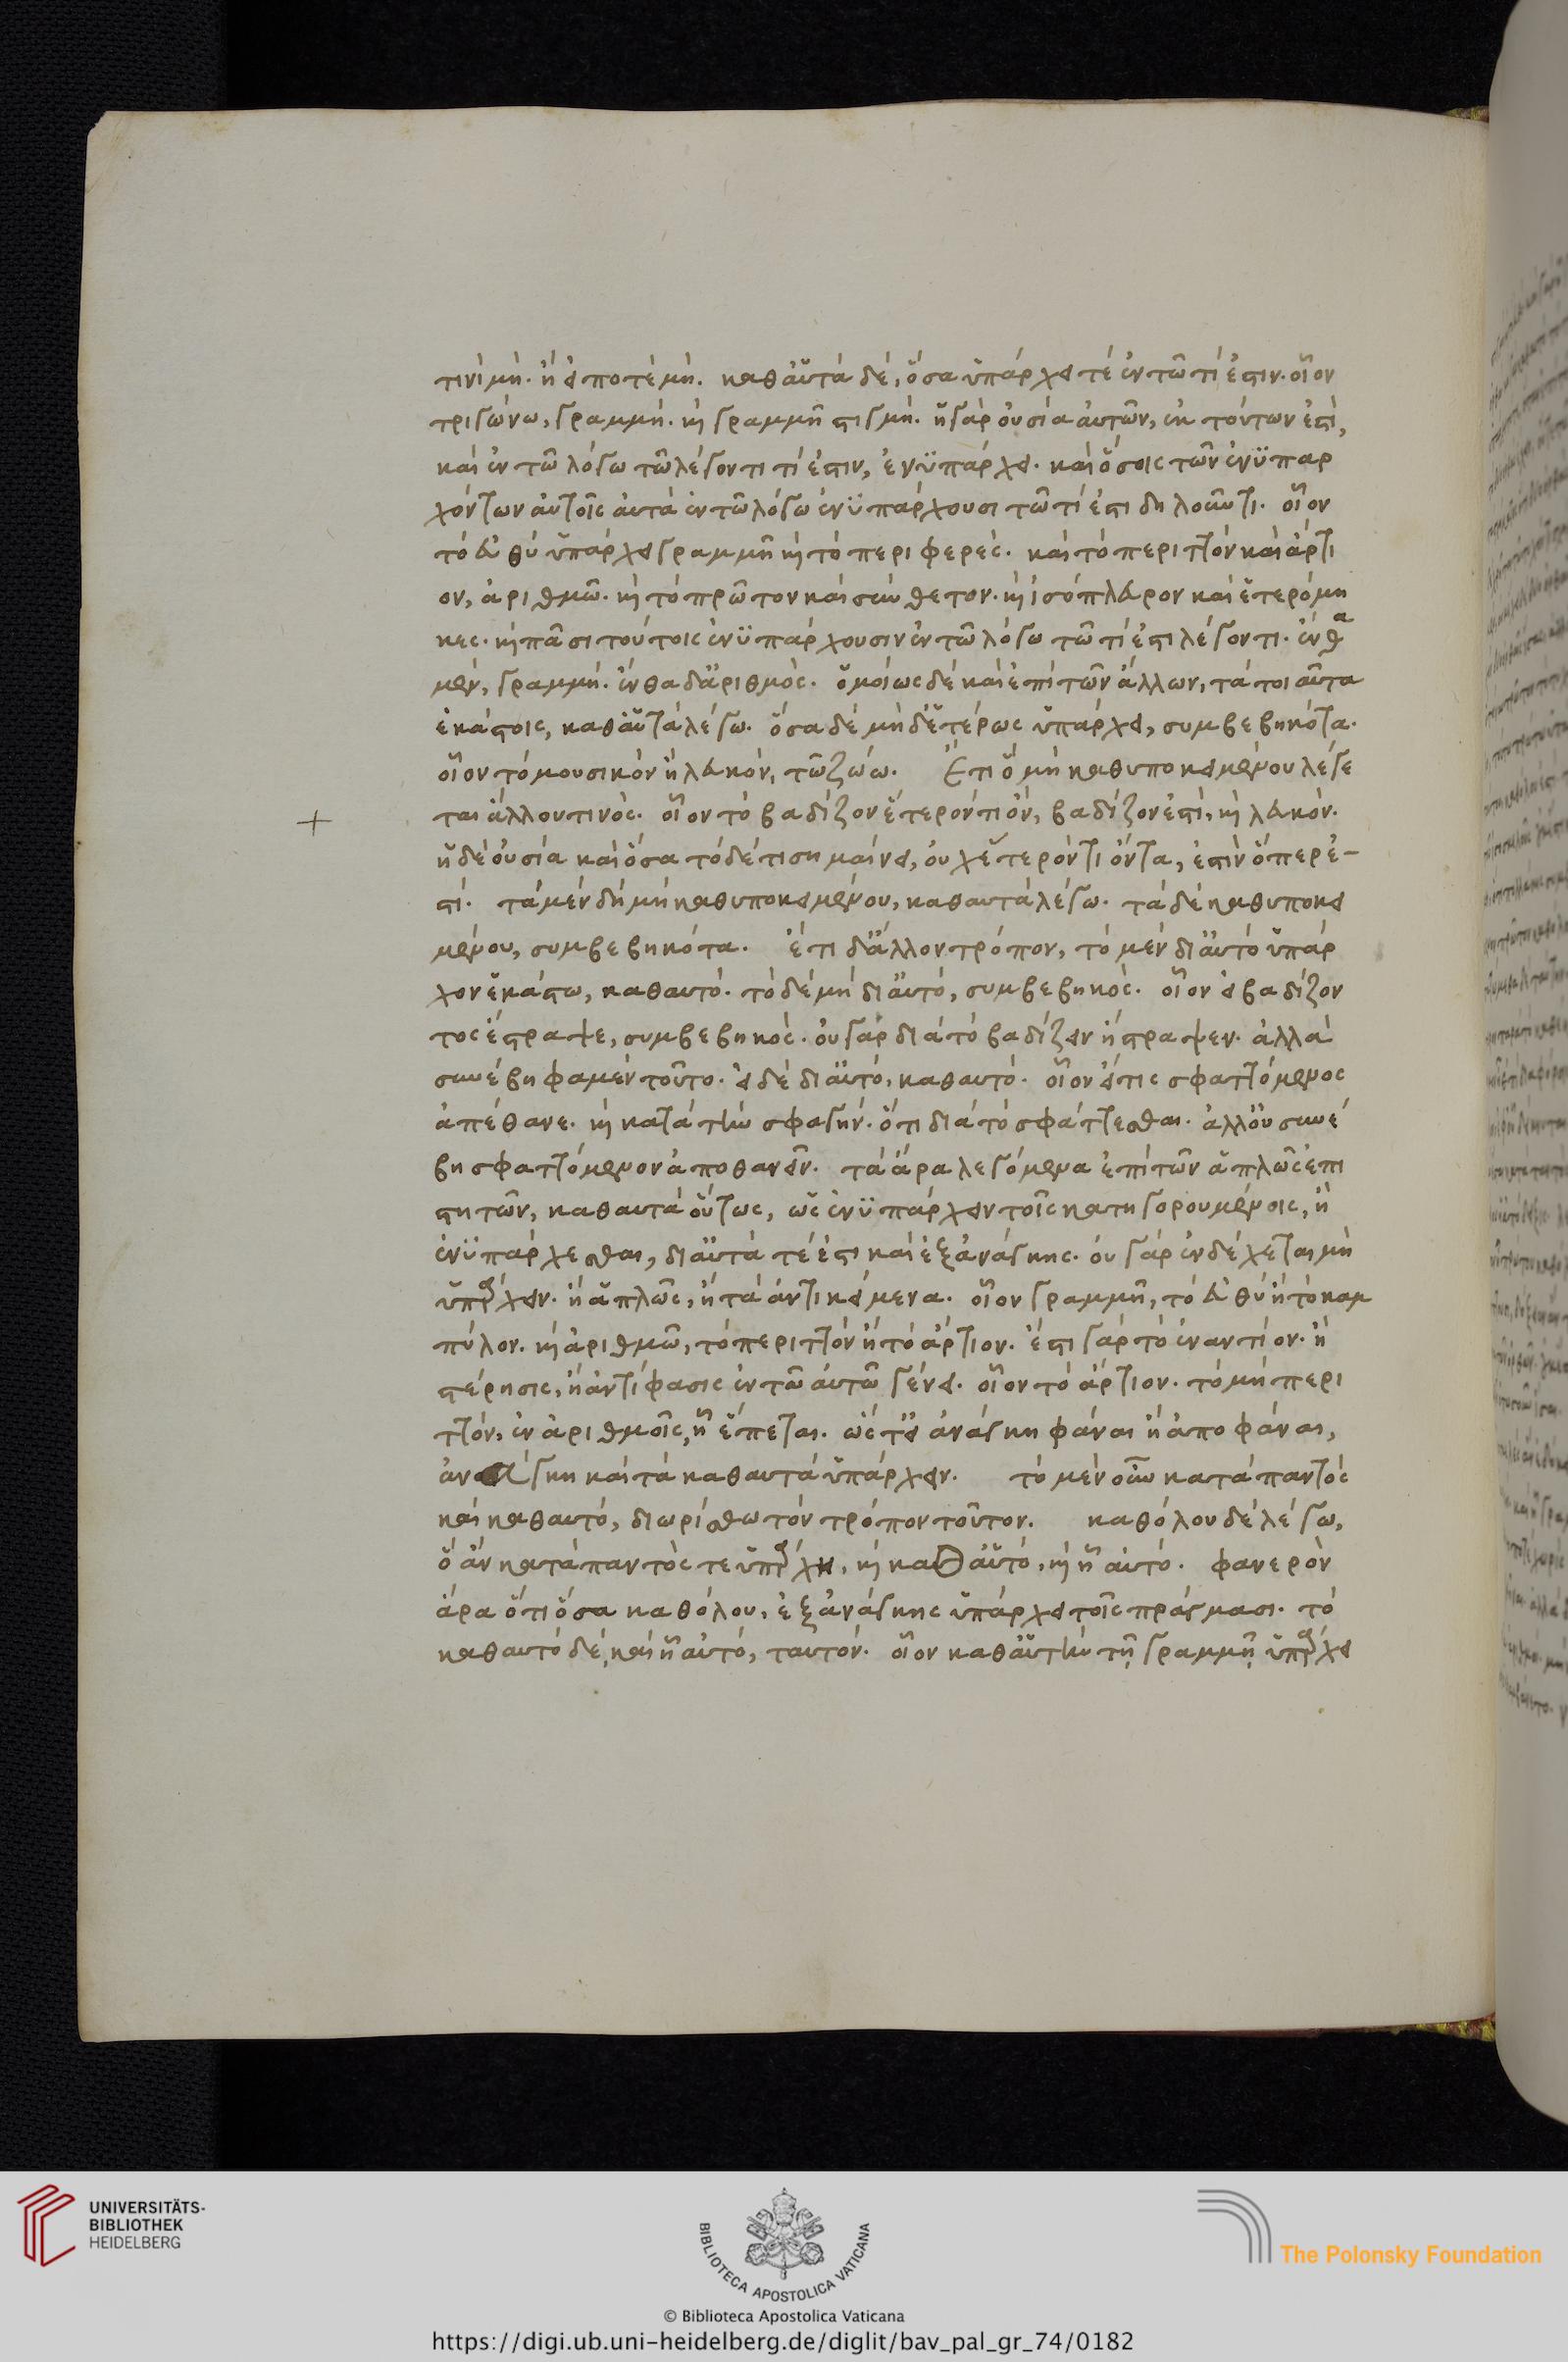 τινὶ μὴ. ἢ εἰ ποτὲ μὴ. καθ᾽ αὑτὰ δὲ, ὅσα ὑπάρχει τὲ ἐν τῶ τί ἐστιν. οἷον
τριγώνω, γραμμή. καὶ γραμμῆ στιγμή. ἡ γὰρ οὐσία αὐτῶν, ἐκ τούτων ἐστὶ,
καὶ ἐν τῶ λόγω τῶ λέγοντι τί ἐστιν, ἐνϋπάρχει. καὶ ὅσοις τῶν ἐνϋπαρ
χόντων αὐτοῖς αὐτὰ ἐν τῶ λόγω ἐνϋπάρχουσι τῶ τί ἐστι δηλοῦντι. οἷον
τὸ εὐθὺ ὑπάρχει γραμμῆ καὶ τὸ περιφερές. καὶ τὸ περιττὸν καὶ ἄρτι
ον, ἀριθμῶ. καὶ τὸ πρῶτον καὶ σύνθετον. καὶ ἰσόπλευρον καὶ ἑτερόμη
κες. καὶ πᾶσι τούτοις ἐνϋπάρχουσιν ἐν τῶ λόγω τῶ τί ἐστι λέγοντι. ἔνθα
μὲν, γραμμή. ἔνθα δ᾽ ἀριθμὸς. ὁμοίως δὲ καὶ ἐπὶ τῶν ἄλλων, τὰ τοιαῦτα
ἑκάστοις, καθ᾽ αὑτὰ λέγω. ὅσα δὲ μηδετέρως ὑπάρχει, συμβεβηκότα.
οἷον τὸ μουσικὸν ἢ λευκὸν, τῶ ζώω. Ἔτι ὃ μὴ καθ υποκειμένου λέγε
ται ἄλλου τινὸς. οἷον τὸ βαδίζον ἕτερόν τι ὂν, βαδίζον ἐστὶ, καὶ λευκόν.
ἡ δὲ οὐσία καὶ ὅσα τόδε τι σημαίνει, οὐχ ἕτερόν τι ὄντα, ἐστὶν ὅπερ ἐ-
στί. τὰ μὲν δὴ μὴ καθ υποκειμένου, καθ αυτὰ λέγω. τὰ δὲ καθ υποκει
μένου, συμβεβηκότα. ἔτι δ᾽ ἄλλον τρόπον, τὸ μὲν δι᾽ αὑτὸ ὑπάρ
χον ἑκάστω, καθ αυτό. τὸ δὲ μὴ δι᾽ αὑτὸ, συμβεβηκὸς. οἷον εἰ βαδίζον
τος ἤστραψε, συμβεβηκὸς. οὐ γὰρ διὰ τὸ βαδίζειν ἤστραψεν. ἀλλὰ
συνέβη φαμὲν τοῦτο. εἰ δὲ δι᾽ αὑτὸ, καθ αυτό. οἷον εἴ τις σφαττόμενος
ἀπέθανε. καὶ κατὰ τὴν σφαγήν. ὅτι διὰ τὸ σφάττεσθαι. ἀλλ᾽ οὐ συνέ
βη σφαττόμενον ἀποθανεῖν. τὰ ἄρα λεγόμενα ἐπὶ τῶν ἁπλῶς ἐπι
στητῶν, καθ αυτὰ οὕτως, ὡς ἐνϋπάρχειν τοῖς κατηγορουμένοις, ἢ
ἐνϋπάρχεσθαι, δι᾽ αὑτὰ τέ ἐστι καὶ ἐξ ἀνάγκης. οὐ γὰρ ἐνδέχεται μὴ
ὑπάρχειν. ἢ ἁπλῶς, ἢ τὰ ἀντικείμενα. οἷον γραμμῆ, τὸ εὐθὺ ἢ τὸ καμ
πύλον. καὶ ἀριθμῶ, τὸ περιττὸν ἢ τὸ ἄρτιον. ἔστι γὰρ τὸ ἐναντίον. ἢ
στέρησις, ἢ ἀντίφασις ἐν τῶ αὐτῶ γένει. οἷον τὸ ἄρτιον. τὸ μὴ περι
ττὸν, ἐν ἀριθμοῖς, ἧ ἕπεται. ὥστ᾽ εἰ ἀνάγκη φάναι ἢ ἀποφάναι,
ἀνάγκη καὶ τὰ καθ αυτὰ ὑπάρχειν. τὸ μὲν οὖν κατὰ παντὸς
καὶ καθ αυτό, διωρίσθω τὸν τρόπον τοῦτον. καθόλου δὲ λέγω,
ὃ ἂν κατὰ παντὸς τε ὑπάρχη, καὶ καθ᾽ αὑτό, καὶ ἧ αὐτό. φανερὸν
ἄρα ὅτι ὅσα καθόλου, ἐξ ἀνάγκης ὑπάρχει τοῖς πράγμασι. τὸ
καθ αυτὸ δὲ, καὶ ἧ αὐτό, ταυτόν. οἷον καθ᾽ αὑτὴν τῇ γραμμῇ ὑπάρχει
UNIVERSITÄTS-
BIBLIOTHEK
HEIDELBERG
BIBLIOTECA APOSTOLICA VATICANA
The Polonsky Foundation
© Biblioteca Apostolica Vaticana
https://digi.ub.uni-heidelberg.de/diglit/bav_pal_gr_74/0182